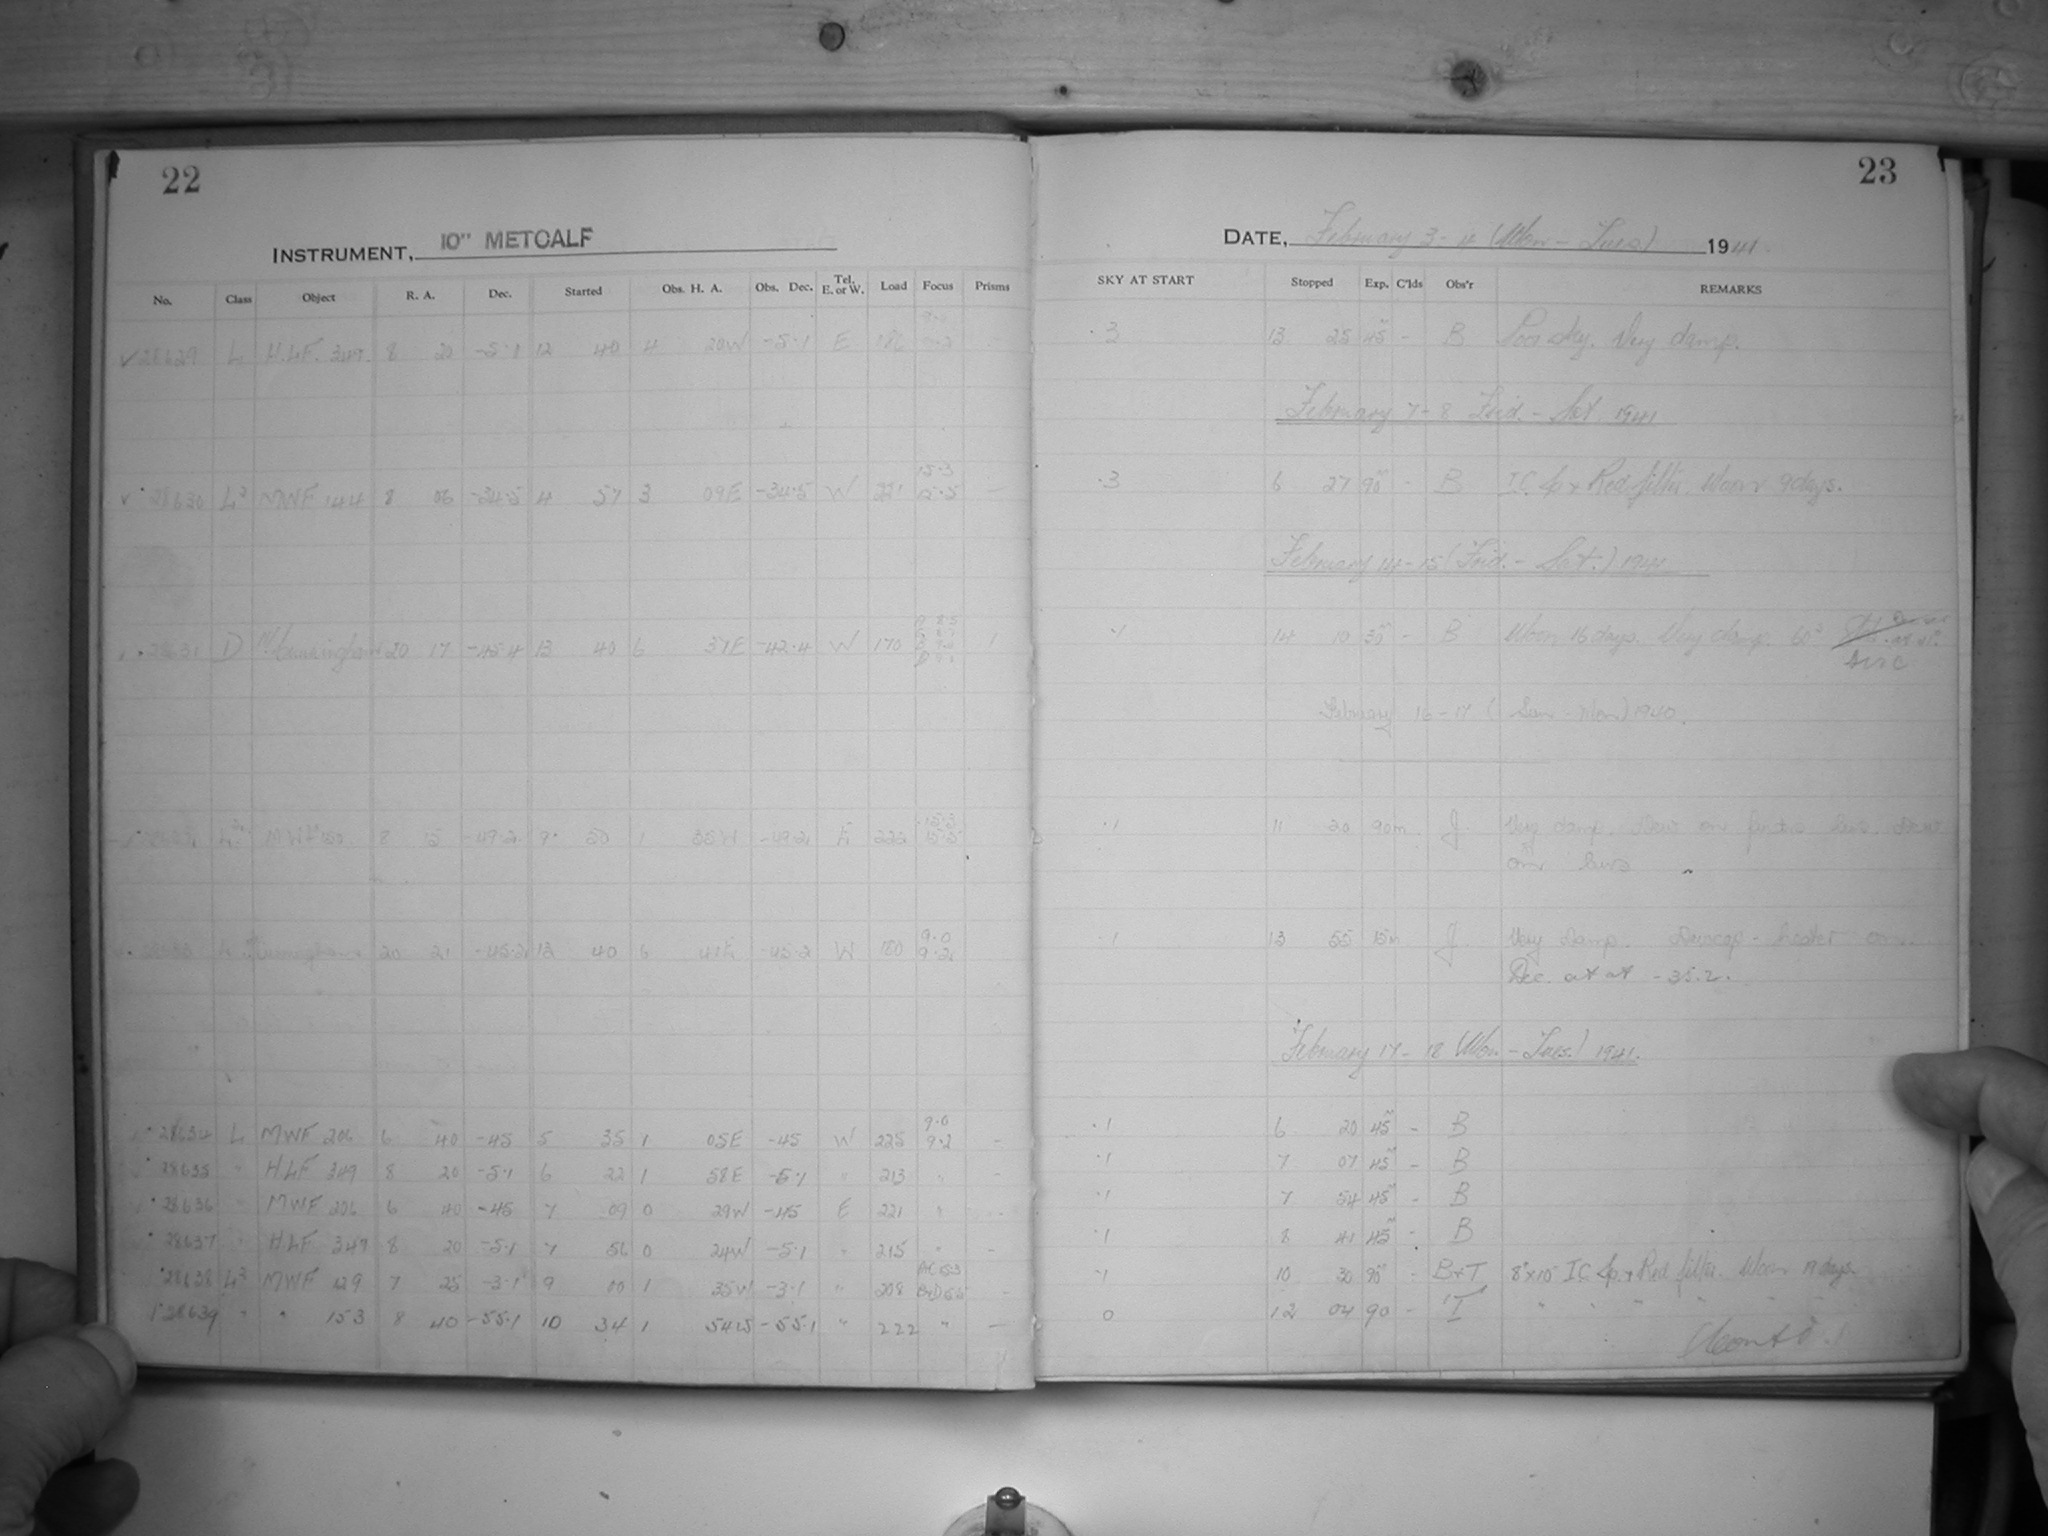 22
INSTRUMENT, 10" METCALF
No. Class Object R. A. Dec. Started Obs. H. A. Obs. Dec. Tel. E. or W. Load Focus Prisms
28629 L HLF. 349. 8 20 -5.1 12 40 4 20W -5.1 E 186
28630 L² MWF 144 8 06 -34.5 4 57 3 09E -34.5 W 221 15.3 15.5 -
28631 D Cunningham 20 17 13 40 6 37E -42.4 W 170 1
MWF 150 8 15 -49.2 9 50 1 35W -49.2 E 222 15.3 15.5
20 21 -45.2 13 40 6 41E -45.2 W 180 9.0 9.2
28634 L MWF 206 6 40 -45 5 35 1 05E -45 W 225 9.0 9.2 -
28635 " HLF 349 8 20 -5.1 6 22 1 58E -5.1 " 213 " -
28636 " MWF 206 6 40 -45 7 09 0 29W -45 E 221 " -
28637 " HLF 349 8 20 -5.1 7 56 0 24W -5.1 " 215 " -
28638 L² MWF 129 7 25 -3.1 9 00 1 35W -3.1 " 208 -
28639 " " 153 8 40 -55.1 10 34 1 54W -55.1 " 222 " -
23
DATE, February 3-4 (Mon - Tues) 1941.
SKY AT START Stopped Exp. C'lds Obs'r REMARKS
.3 13 25 45ᵐ - B Poor sky. Very damp.
February 7-8 Frid. - Sat. 1941
.3 6 27 90ᵐ - B I.C. Sp. + Red filter. Moon 9 days.
February 14-15 (Frid. - Sat.) 1941
.1 14 10 30ᵐ - B Moon 16 days. Very damp.
February 16-17 (Sun - Mon) 1940.
.1 11 20 90m J. Very damp. Dew on
on lens
.1 13 55 15m J. Very damp. Dewcap-heater on.
Dec. at -35.2.
February 17-18 (Mon. - Tues.) 1941.
.1 6 20 45ᵐ - B
.1 7 07 45ᵐ - B
.1 7 54 45ᵐ - B
.1 8 41 45ᵐ - B
.1 10 30 90ᵐ - B+T 8"x10" I.C. Sp. + Red filter. Moon 19 days.
0 12 04 90 - T " " " " " "
(Cont'd.)